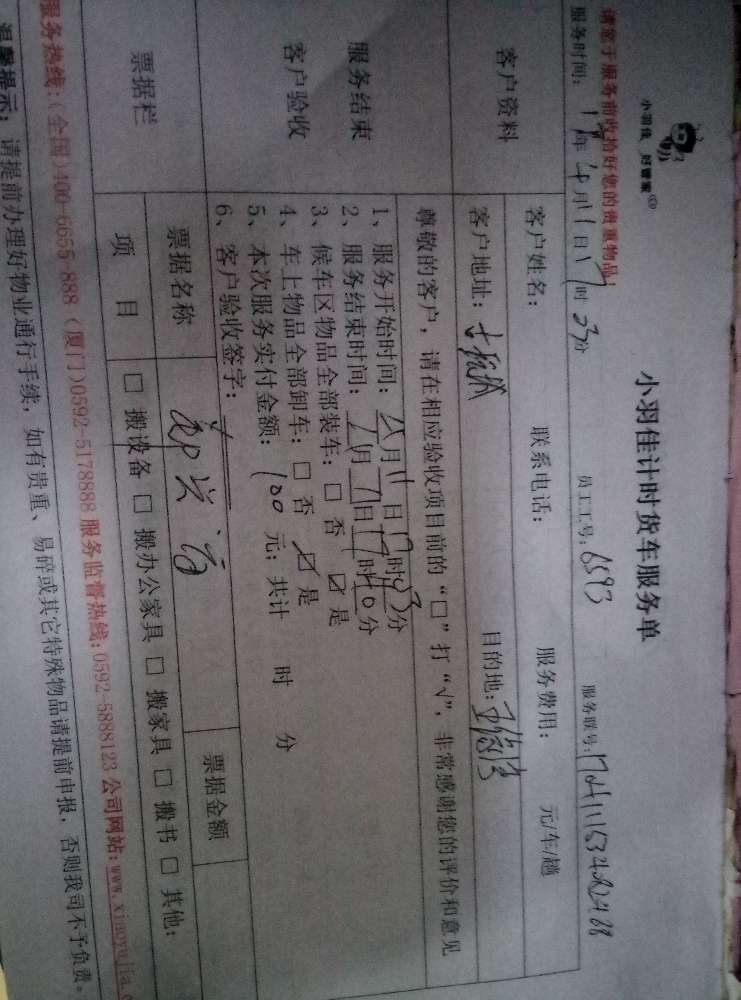 小羽佳 好管家
小羽佳计时货车服务单
请您于服务前收拾好您的贵重物品:
员工工号: 6593
服务时间: 17年4月11日17时 3分
客户资料
客户姓名: 联系电话: 服务费用: 元/车/趟
客户地址: 目的地:
服务结束
客户验收
尊敬的客户,请在相应验收项目前的“□”打“√”,非常感谢您的评价和意见
1、服务开始时间: 月11日17时03分
2、服务结束时间: 月 日17时40分
3、候车区物品全部装车: □ 否 ☑ 是
4、车上物品全部卸车: □ 否 ☑ 是
5、本次服务实付金额: 100 元; 共计 时 分
6、客户验收签字:
票据栏
票据名称 票据金额
项 目 □ 搬设备 □ 搬办公家具 □ 搬家具 □ 搬书 □ 其他:
服务热线:(全国)400-6655-888 (厦门)0592-5178888 服务监督热线:0592-5888123 公司网站:www.xiaoyujia.c
温馨提示: 请提前办理好物业通行手续,如有贵重、易碎或其它特殊物品请提前申报,否则我司不予负责。